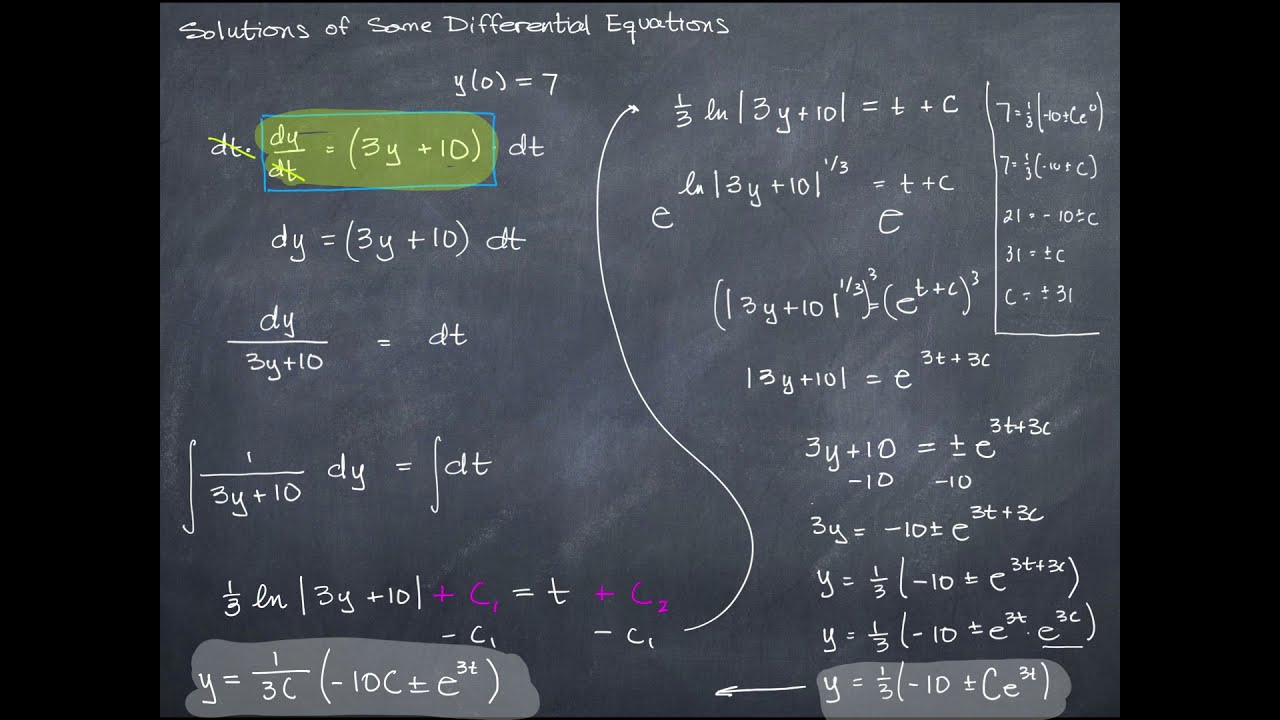 Solutions of Some Differential Equations
y(0) = 7
dt · dy/dt = (3y + 10) · dt
dy = (3y + 10) dt
dy/(3y+10) = dt
∫ 1/(3y+10) dy = ∫ dt
1/3 ln |3y +10| + C₁ = t + C₂
- C₁ - C₁
y = 1/3C (-10C ± e^3t)
1/3 ln |3y +10| = t + C
e^ln |3y +10|^1/3 = e^t+C
(|3y+10|^1/3)^3 = (e^t+C)^3
|3y+10| = e^3t+3C
3y+10 = ± e^3t+3C
-10 -10
3y = -10 ± e^3t+3C
y = 1/3 (-10 ± e^3t+3C)
y = 1/3 (-10 ± e^3t · e^3C)
y = 1/3 (-10 ± Ce^3t)
7 = 1/3 (-10 ± Ce^0)
7 = 1/3 (-10 ± C)
21 = -10 ± C
31 = ± C
C = ± 31